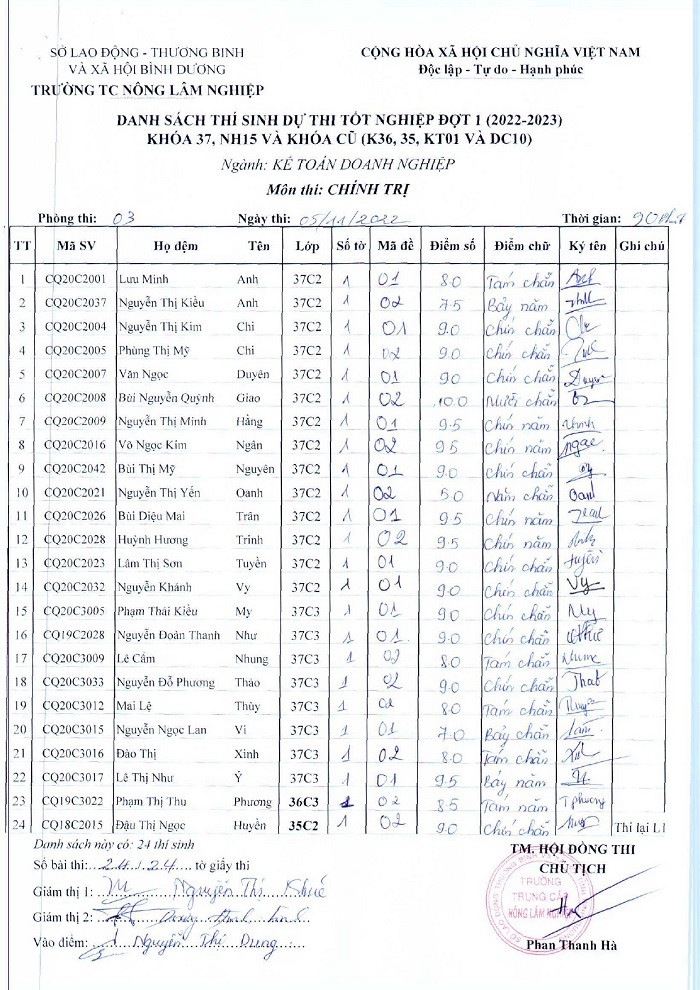 SỞ LAO ĐỘNG - THƯƠNG BINH
VÀ XÃ HỘI BÌNH DƯƠNG
TRƯỜNG TC NÔNG LÂM NGHIỆP
CỘNG HÒA XÃ HỘI CHỦ NGHĨA VIỆT NAM
Độc lập - Tự do - Hạnh phúc
DANH SÁCH THÍ SINH DỰ THI TỐT NGHIỆP ĐỢT 1 (2022-2023)
KHÓA 37, NH15 VÀ KHÓA CŨ (K36, 35, KT01 VÀ DC10)
Ngành: KẾ TOÁN DOANH NGHIỆP
Môn thi: CHÍNH TRỊ
Phòng thi: 03 Ngày thi: 05/11/2022 Thời gian: 90
TT Mã SV Họ đệm Tên Lớp Số tờ Mã đề Điểm số Điểm chữ Ký tên Ghi chú
1 CQ20C2001 Lưu Minh Anh 37C2 1 01 8.0 Tám chẵn
2 CQ20C2037 Nguyễn Thị Kiều Anh 37C2 1 02 7.5 Bảy năm
3 CQ20C2004 Nguyễn Thị Kim Chi 37C2 1 01 9.0 Chín chẵn
4 CQ20C2005 Phùng Thị Mỹ Chi 37C2 1 02 9.0 Chín chẵn
5 CQ20C2007 Văn Ngọc Duyên 37C2 1 01 9.0 Chín chẵn Duyên
6 CQ20C2008 Bùi Nguyễn Quỳnh Giao 37C2 1 02 10.0 Mười chẵn
7 CQ20C2009 Nguyễn Thị Minh Hằng 37C2 1 01 9.5 Chín năm
8 CQ20C2016 Võ Ngọc Kim Ngân 37C2 1 02 9.5 Chín năm
9 CQ20C2042 Bùi Thị Mỹ Nguyên 37C2 1 01 9.0 Chín chẵn
10 CQ20C2021 Nguyễn Thị Yến Oanh 37C2 1 02 5.0 Năm chẵn
11 CQ20C2026 Bùi Diệu Mai Trân 37C2 1 01 9.5 Chín chẵn
12 CQ20C2028 Huỳnh Hương Trinh 37C2 1 02 9.5 Chín năm
13 CQ20C2023 Lâm Thị Sơn Tuyền 37C2 1 01 9.0 Chín chẵn Tuyền
14 CQ20C2032 Nguyễn Khánh Vy 37C2 1 01 9.0 Chín chẵn Vy
15 CQ20C3005 Phạm Thái Kiều My 37C3 1 01 9.0 Chín chẵn My
16 CQ19C2028 Nguyễn Đoàn Thanh Như 37C3 1 01 9.0 Chín chẵn
17 CQ20C3009 Lê Cẩm Nhung 37C3 1 02 8.0 Tám chẵn
18 CQ20C3033 Nguyễn Đỗ Phương Thảo 37C3 1 02 9.0 Chín chẵn
19 CQ20C3012 Mai Lệ Thủy 37C3 1 02 8.0 Tám chẵn
20 CQ20C3015 Nguyễn Ngọc Lan Vi 37C3 1 01 7.0 Bảy chẵn
21 CQ20C3016 Đào Thị Xinh 37C3 1 02 8.0 Tám chẵn
22 CQ20C3017 Lê Thị Như Ý 37C3 1 01 9.5 Bảy năm
23 CQ19C3022 Phạm Thị Thu Phương 36C3 1 02 8.5 Tám năm T phương
24 CQ18C2015 Đậu Thị Ngọc Huyền 35C2 1 02 9.0 Chín chẵn Thi lại L1
Danh sách này có: 24 thí sinh
Số bài thi: 24 / 24 tờ giấy thi
Giám thị 1: Nguyễn Thị Khuê
Giám thị 2:
Vào điểm: Nguyễn Thị Dung
TM. HỘI ĐỒNG THI
CHỦ TỊCH
TRƯỜNG
TRUNG CẤP
NÔNG LÂM NGHIỆP
Phan Thanh Hà